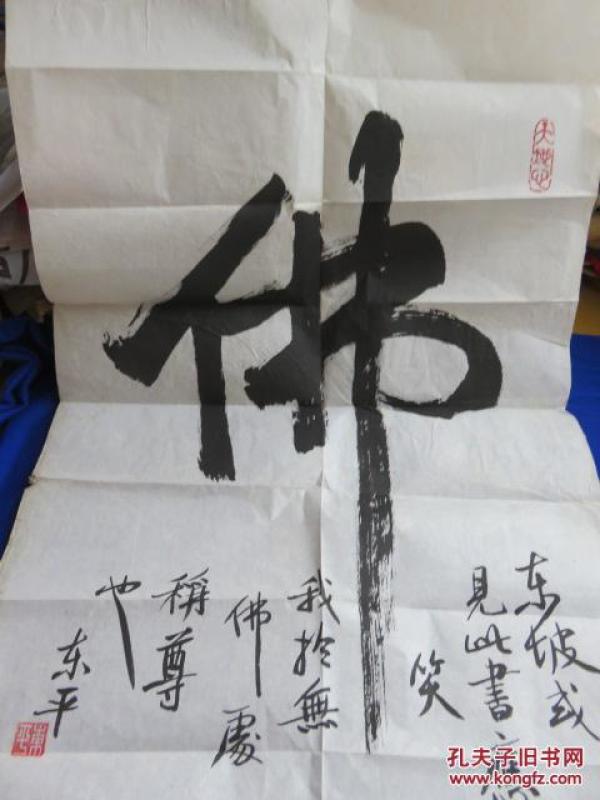 佛
东坡或
見此書應
笑
我於無
佛處
稱尊
也
东平
孔夫子旧书网
www.kongfz.com